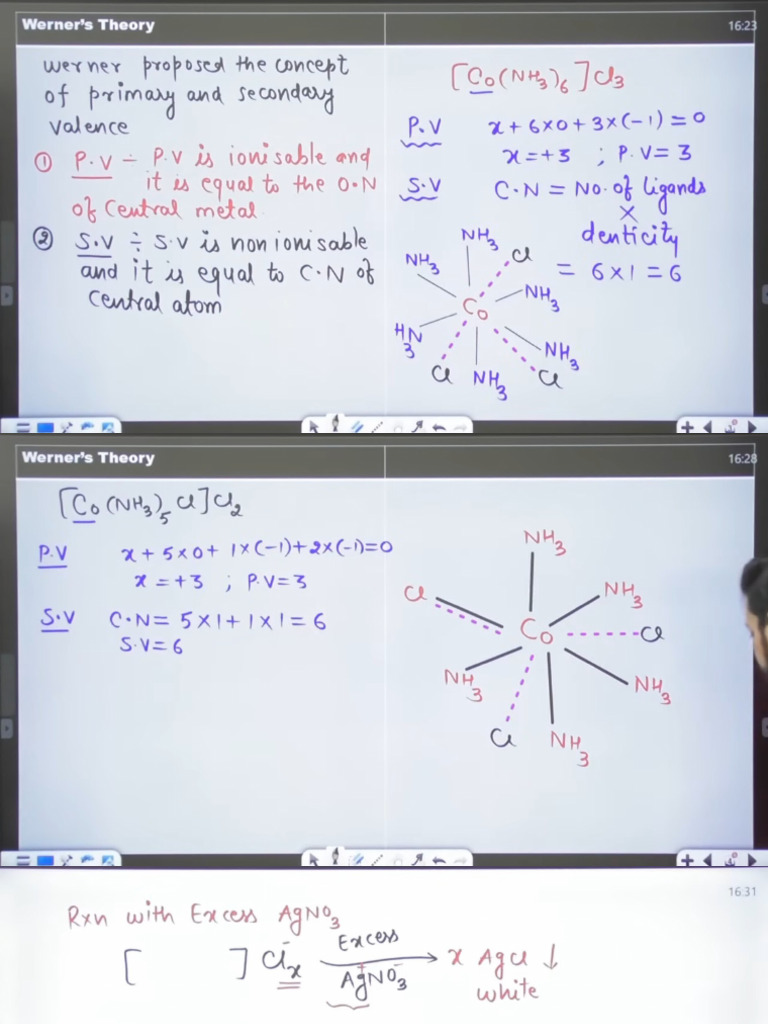 Werner's Theory
16:23
Werner proposed the concept
of primary and secondary
valence
① P.V ÷ P.V is ionisable and
it is equal to the O.N
of Central metal
② S.V ÷ S.V is non ionisable
and it is equal to C.N of
Central atom
[Co(NH₃)₆]Cl₃
P.V x + 6×0 + 3×(-1) = 0
x = +3 ; P.V = 3
S.V C.N = No. of ligands
×
denticity
= 6×1 = 6
NH₃
Cl
NH₃
NH₃
Co
H₃N
NH₃
Cl
NH₃
Cl
Werner's Theory
16:28
[Co(NH₃)₅Cl]Cl₂
P.V x + 5×0 + 1×(-1) + 2×(-1) = 0
x = +3 ; P.V = 3
S.V C.N = 5×1 + 1×1 = 6
S.V = 6
NH₃
Cl
NH₃
Co
Cl
NH₃
NH₃
Cl
NH₃
16:31
Rxn with Excess AgNO₃
[ ] Cl⁻ₓ Excess → x AgCl ↓
Ag⁺NO₃⁻ white